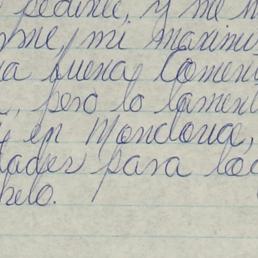 pedirle, y me
me mi maximi
a buena, Coment
, pero lo lament
y en Mondova,
dades para to
helo.